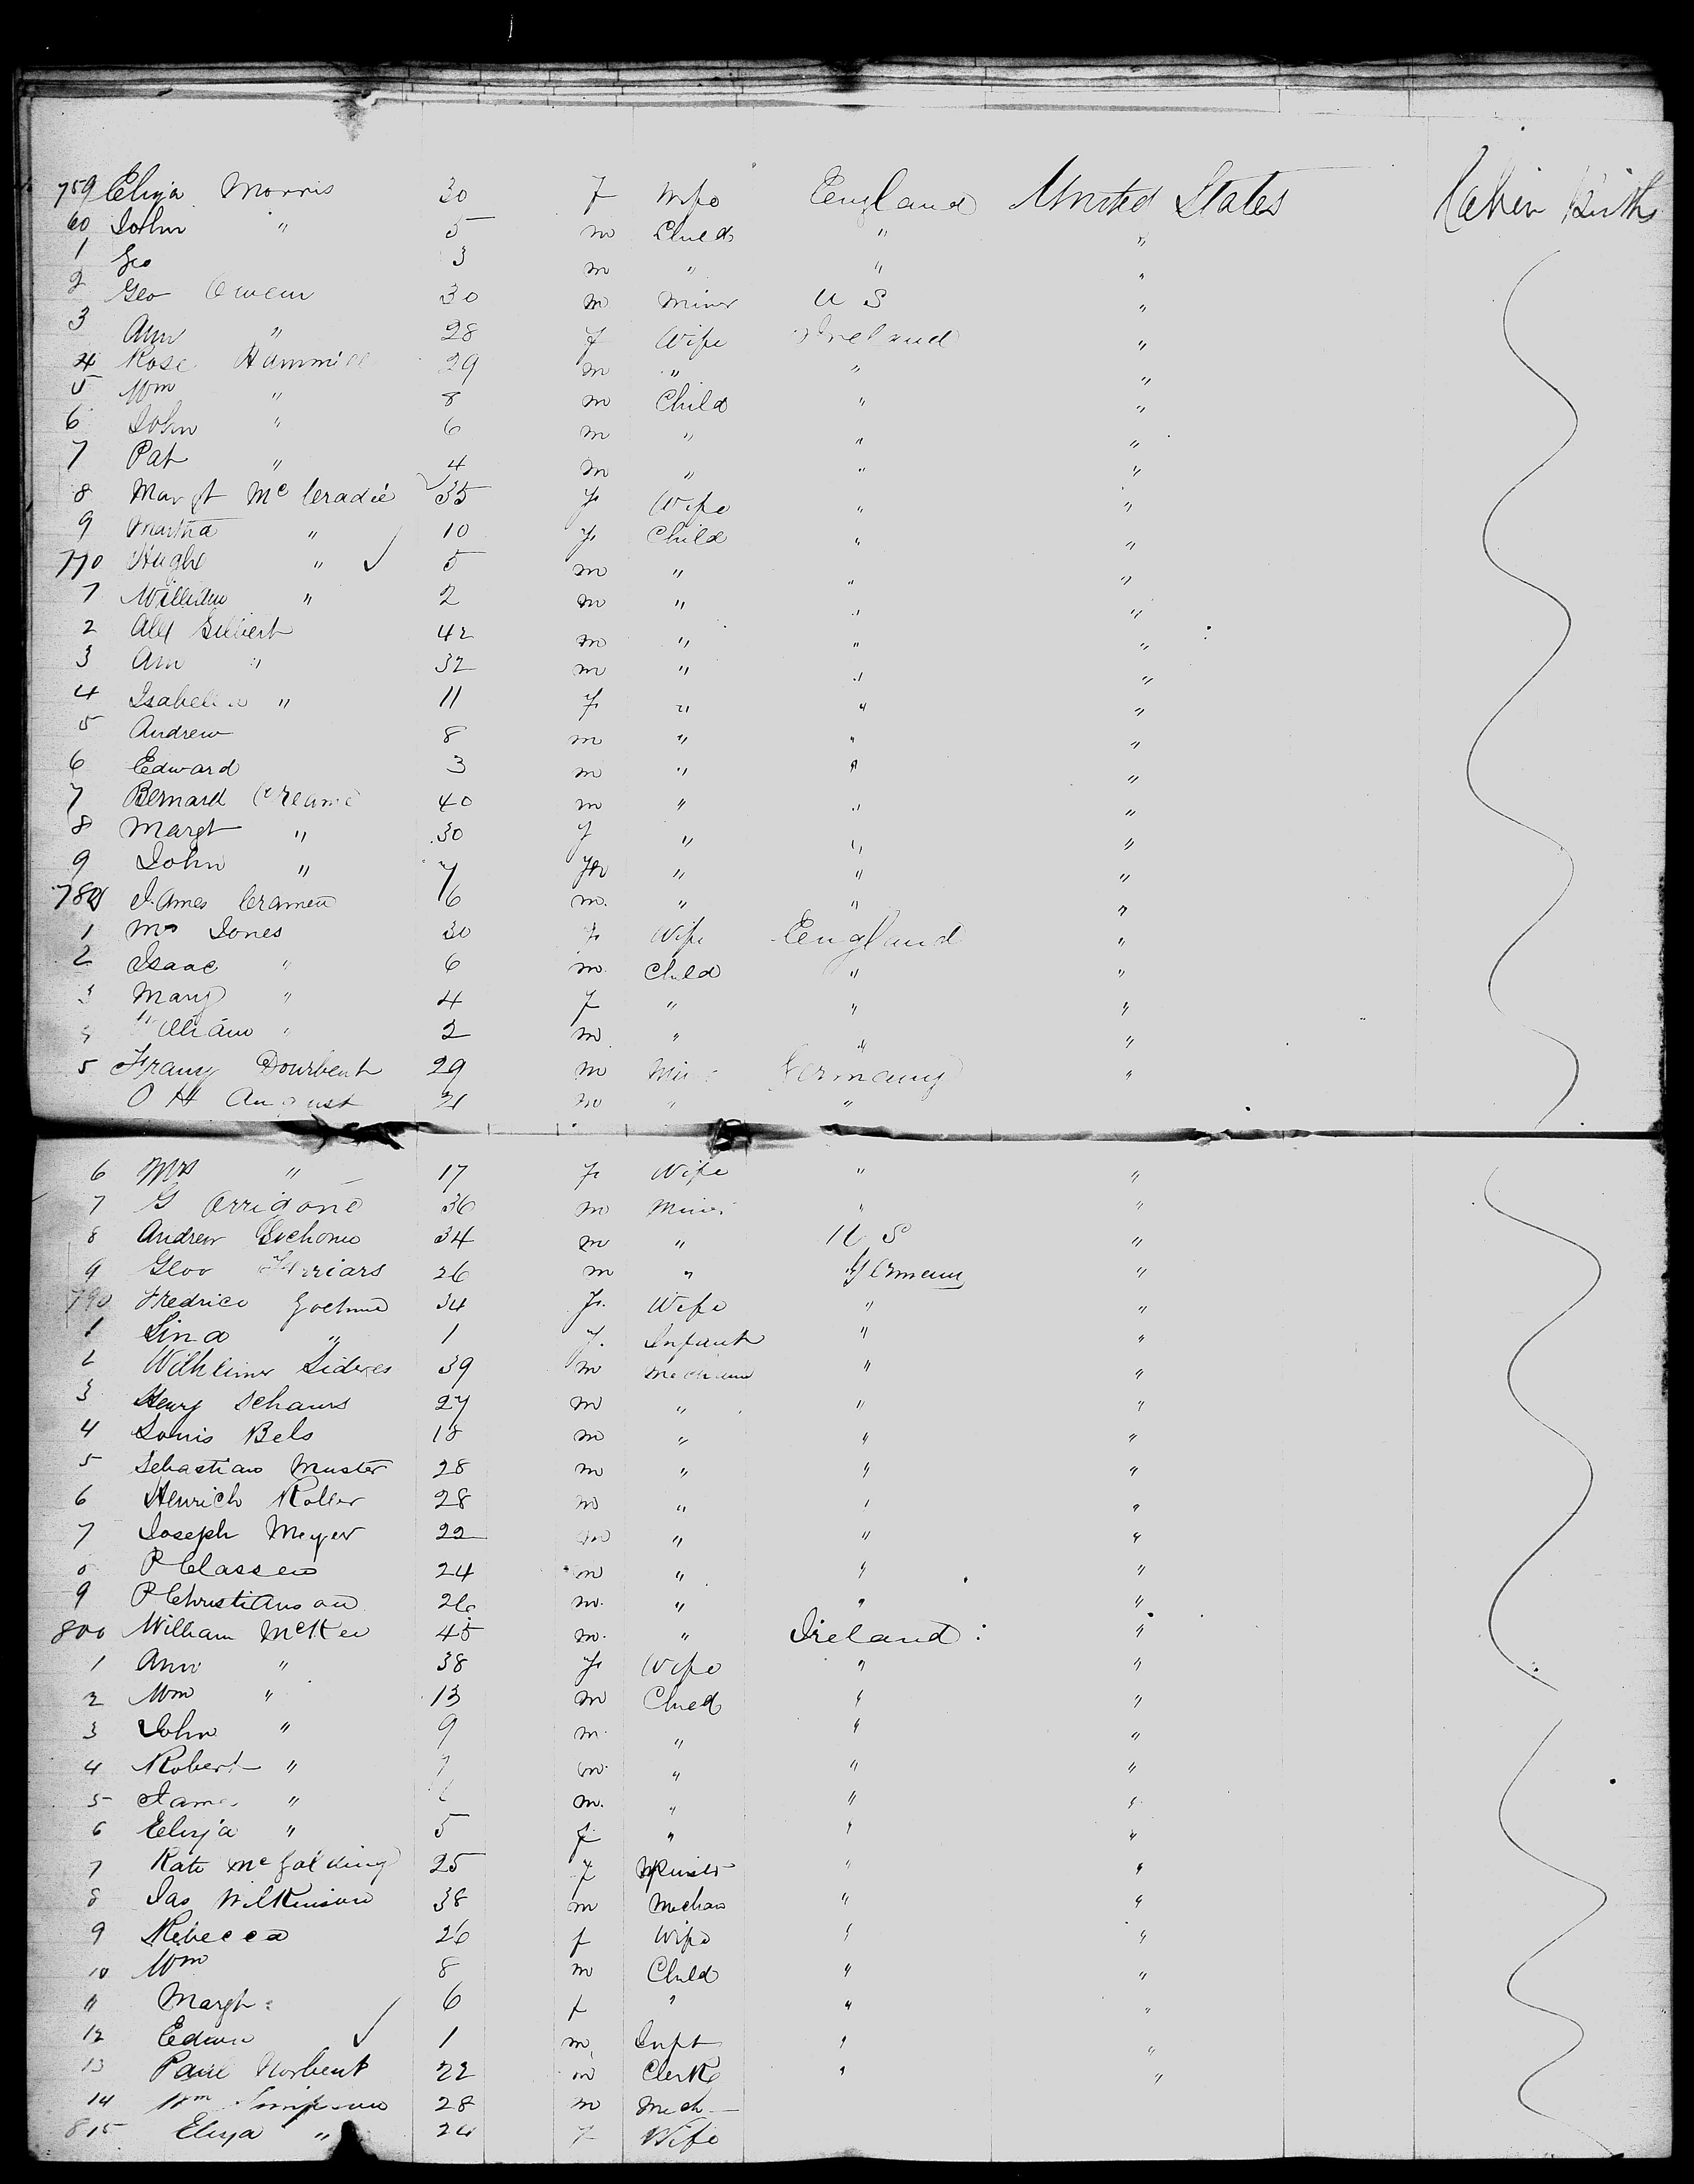 759 Eliza Morris 30 f Wife England United States
60 John " 5 m Child " "
1 Geo 3 m " " "
2 Geo Owens 30 m Miner U S "
3 Ann " 28 f Wife Ireland "
4 Rose Hammill 29 m " " "
5 Wm " 8 m Child " "
6 John " 6 m " " "
7 Pat " 4 m " " "
8 Margt McCradie 35 f Wife " "
9 Martha " 10 f Child " "
770 Hugh " 5 m " " "
7 William " 2 m " " "
2 Alex Gilbert 42 m " " "
3 Ann " 32 m " " "
4 Isabella " 11 f " " "
5 Andrew 8 m " " "
6 Edward 3 m " " "
7 Bernard 40 m " " "
8 Margt " 30 f " " "
9 John " 7 " " "
780 James Cramen 6 m " " "
1 Mrs Jones 30 f Wife England "
2 Isaac " 6 m Child " "
3 Mary " 4 f " " "
4 William " 2 m " " "
5 Franz Dourbent 29 m Germany "
O H August 21 m " "
6 Mrs " 17 f Wife " "
7 G Arrigone 36 m Miner " "
8 Andrew 34 m " U S "
9 26 m " Germany "
790 Fredrica 34 f Wife " "
1 Lina " 1 f Infant " "
2 Wilhelmer Sideres 39 m " "
3 Henry Schams 27 m " " "
4 Louis Bels 18 m " " "
5 Sebastian Muster 28 m " " "
6 Henrich Roller 28 m " " "
7 Joseph Meyer 22 m " " "
8 P Classen 24 m " " "
9 P Christianson 26 m " " "
800 William McKee 45 m " Ireland "
1 Ann " 38 f Wife " "
2 Wm " 13 m Child " "
3 John " 9 m " " "
4 Robert " 7 m " " "
5 James " m " " "
6 Eliza " 5 f " " "
7 Kate McGolding 25 f " "
8 Jas Wilkinson 38 m Mechan " "
9 Rebecca 26 f Wife " "
10 Wm 8 m Child " "
11 Margt 6 f " " "
12 Edwin 1 m Inft " "
13 Paul Norbent 22 m Clerk " "
14 Wm Simpson 28 m Mech
815 Eliza " 24 f Wife